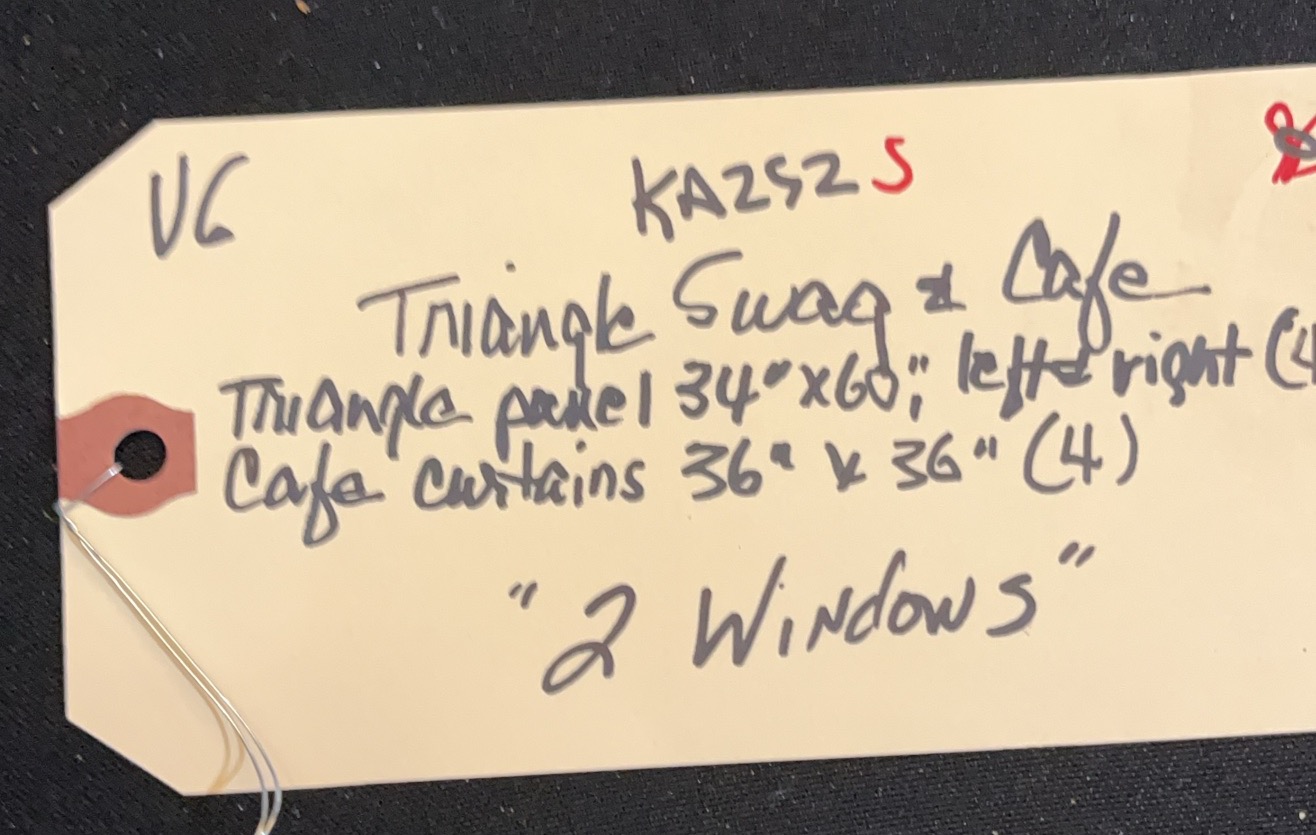 VG KA252 S
Triangle Swag & Cafe
Triangle panel 34" x 60"; left & right (4
Cafe curtains 36" x 36" (4)
"2 Windows"